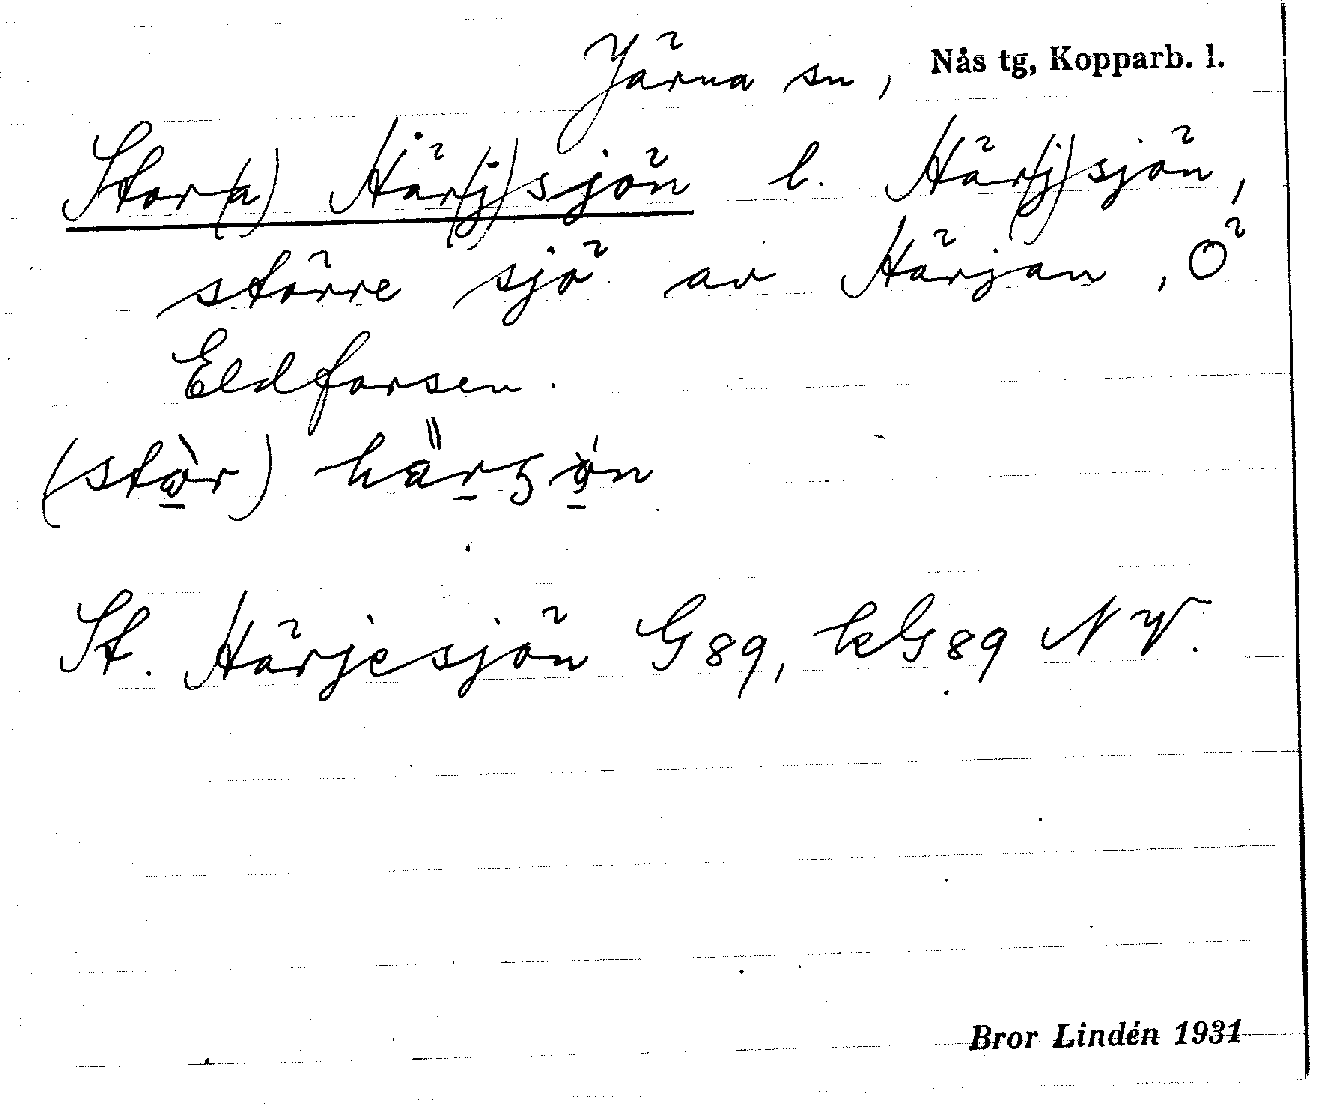 Järna sn, Nås tg, Kopparb. l.
Stor(a) Här(j)sjön l. Här(j)sjön,
större sjö av Härjan, Ö
Eldforsen.
(stòr) härsøn
St. Härjesjön G89, kG89 NV.
Bror Lindén 1931